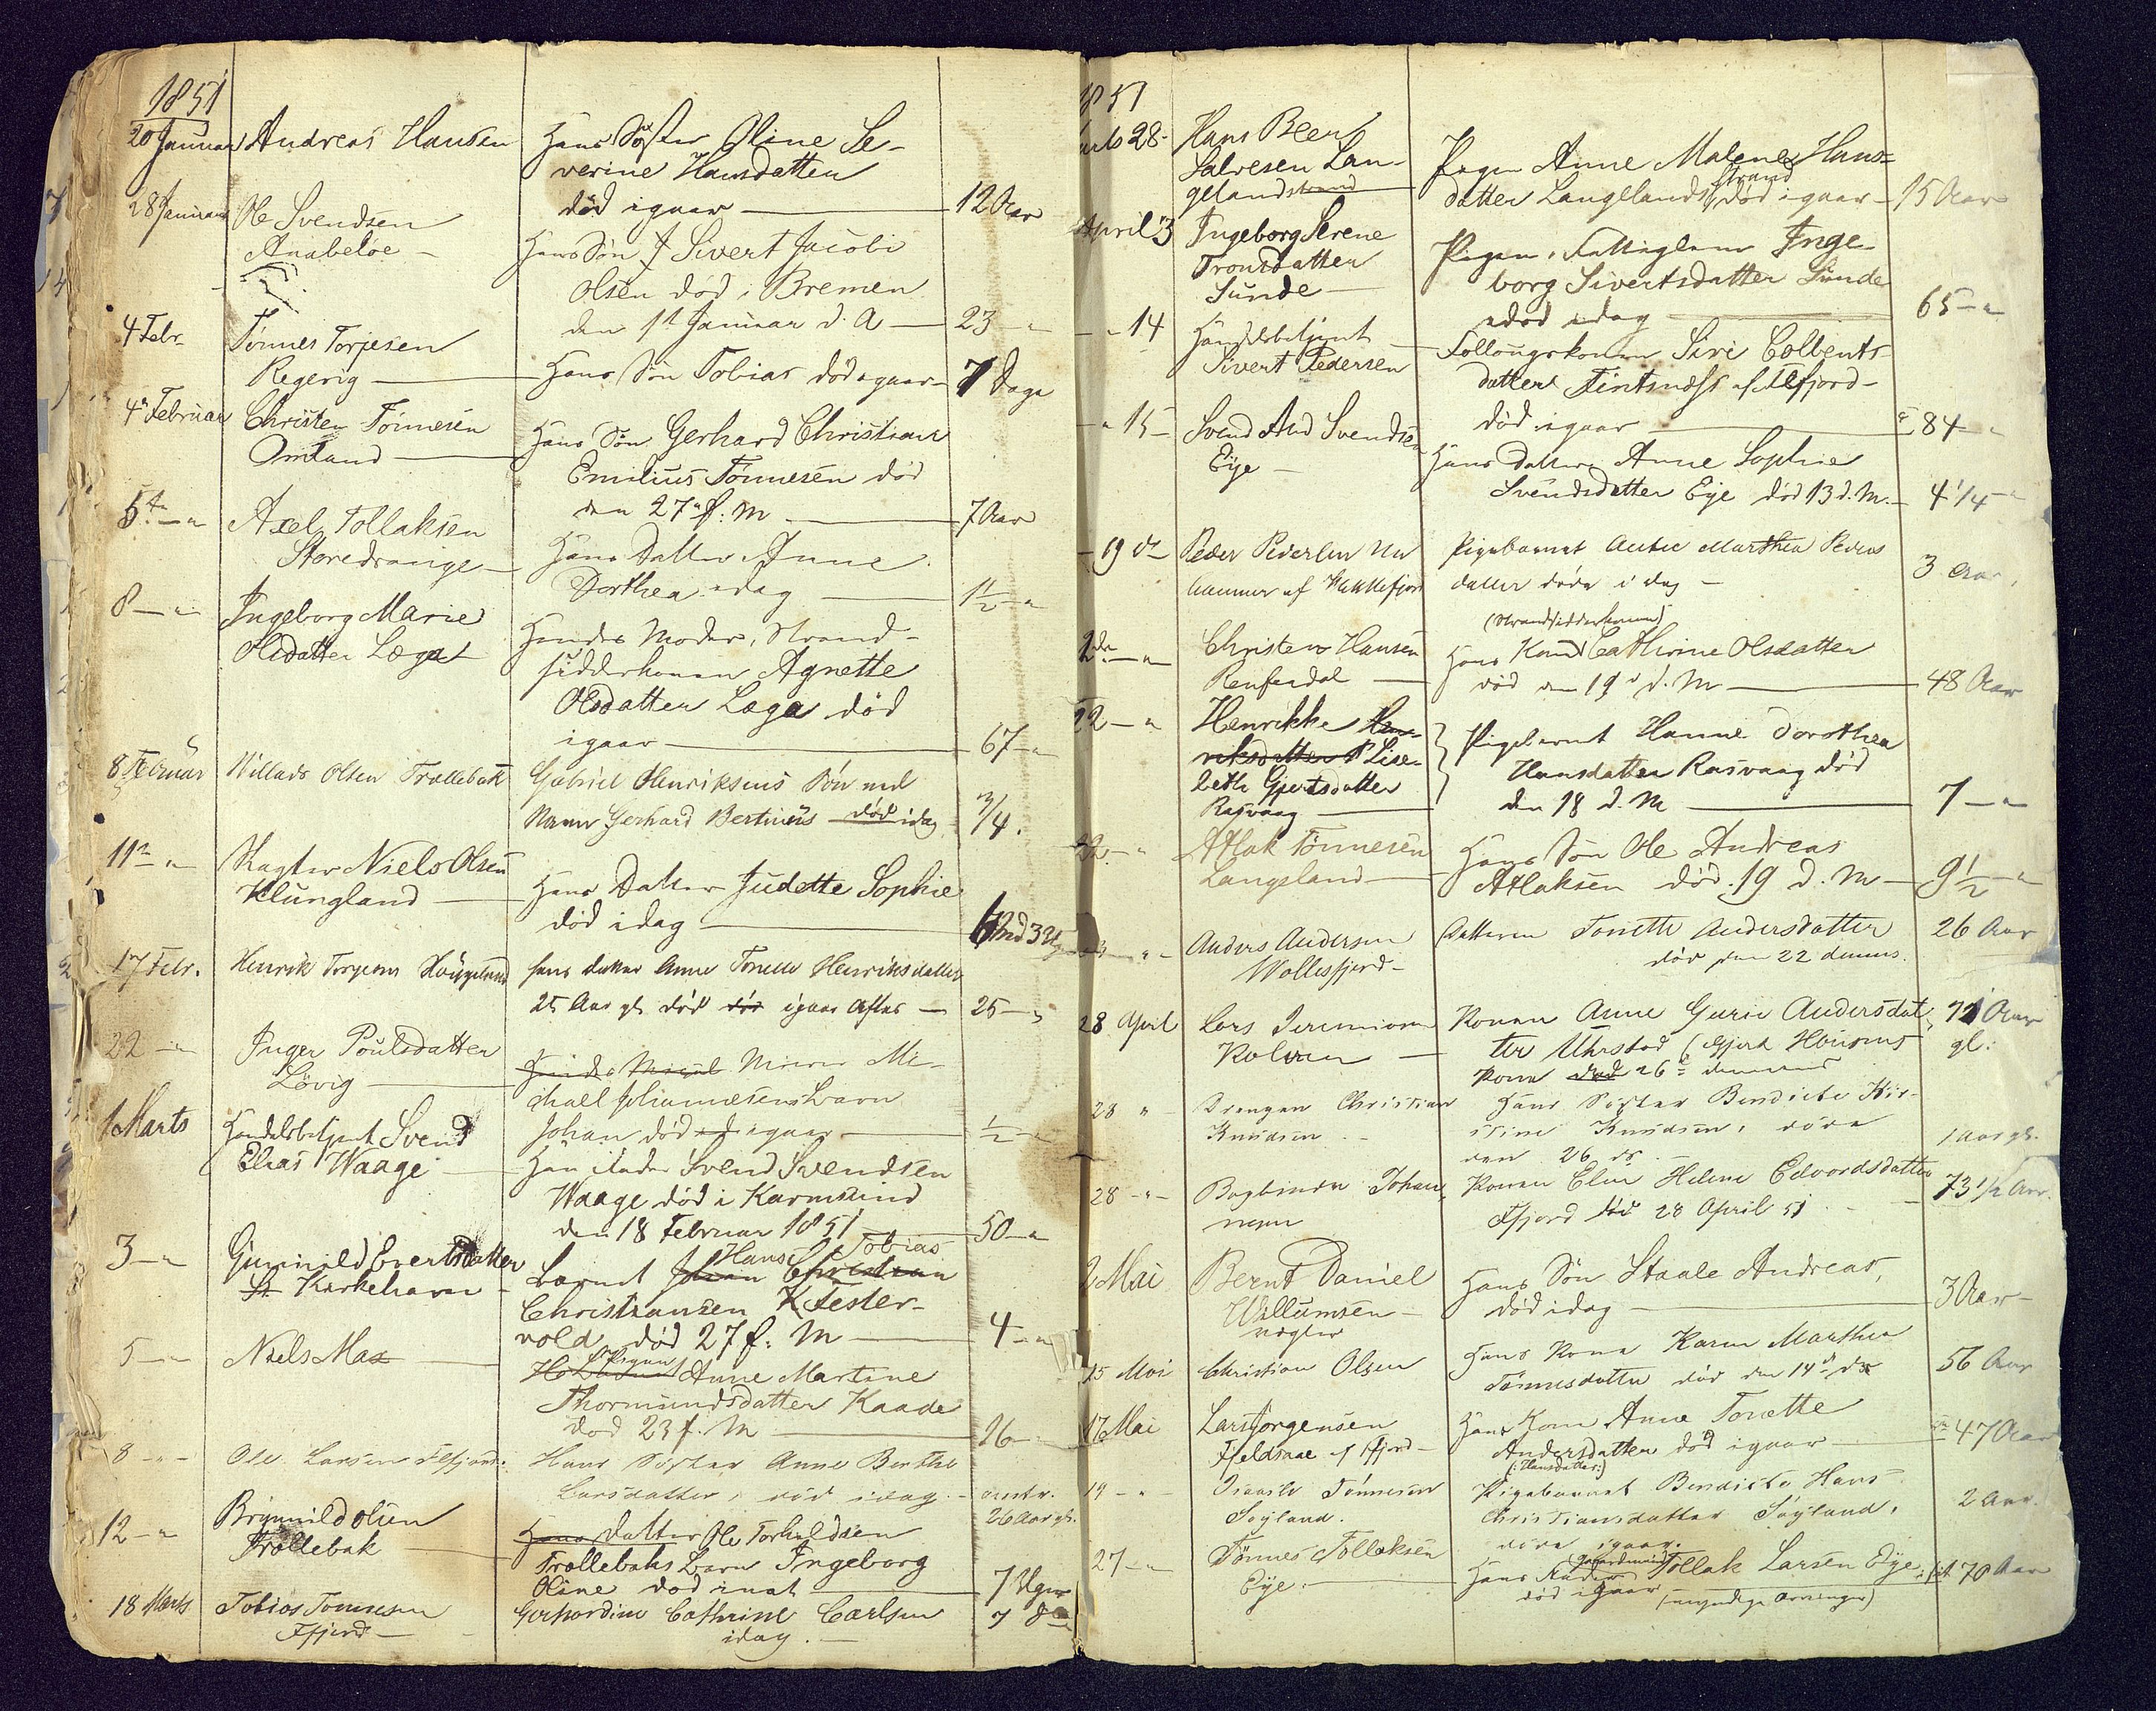 1851
20 Januar Andreas Hansen Hans Søster Oline Se-
verine Hansdatter
død igaar — 12 Aar
28 Januar Ole Svendsen
Anabeløe — Hans Søn Sivert Jacobi
Olsen død i Bremen
den 1st Januar d. A — 23 — "
4 Febr. Tønnes Torjesen
Regevig — Hans Søn Tobias død igaar — 7 Dage
4 Februar Christen Tønnesen
Omland — Hans Søn Gerhard Christian
Emilius Tønnesen død
den 27 f: M — 7 Aar
5te — " Axel Tollaksen
Storedrange — Hans Datter Anne
Dorthea idag — 1 1/2 — "
8 — " Ingeborg Marie
Olsdatter Lega — Hendes Moder, Strand-
sidderkonen Agnette
Olsdatter Lega død
igaar — 67 — "
8 Februar Villads Olsen Trællebak Gabriel Henriksens Søn ved
Navn Gerhard Bertinius død idag 3/4.
11 — " Vægter Niels Olsen
Klungland — Hans Datter Judette Sophie
død idag —
17 Febr. Henrik Torgersen Hans datter Anne Tonette Henriksdatter
25 Aar gl. død igaar Aftes — 25 — "
22 — " Inger Poulsdatter
Løvig — Mi-
chael Johannesens Barn
Johan død igaar — 1/2 — "
1 Marts Handelsbetjent Svend
Elias Waage — Hans Fader Svend Svendsen
Waage død i Karmsund
den 18 Februar 1851 — 50 — "
3 — " Gunnild Evertsdatter
St. Kirkehavn — Barnet Johan Christian Hans Tobias
Christiansen Kfester-
vold, død 27 f: M — 4 — "
5 — " Niels Max — Pigen Anne Martine
Thormundsdatter Kaade
død 23 f. M — 26 — "
8 — " Ole Larsen Flefjord: Hans Søster Anne Berthe
Larsdatter, død idag — 26 Aar gl.
12 — " Brynnild Olsen
Trællebak — Hans Datter Ole Torkildsen
Trællebaks Barn Ingeborg
Oline død inat — 7 Uger
18 Marts Tobias Tønnesen
Ffjord — Gerhardine Cathrine Carlsen
idag. —
1851
Marts 28 - Hans Beer
Salvesen Lan-
gelandstrand Pigen Anne Malene Hans-
datter Langelandstrand død igaar — 15 Aar
April 3 Ingeborg Serene
Tronsdatter
Sunde — Pigen, Fattiglem Inge-
borg Sivertsdatter Sunde
død idag — 65 — "
— " 14 Handelsbetjent
Sivert Pedersen — Follougskonen Siri Colbents-
datter Fintsnæss af Flfjord —
død igaar — 84 — "
— " 15 — Svend And Svendsen
Eye — Hans Datter Anne Sophie
Svendsdatter Eye død 13 d. M. — 4 1/4 — "
— 19 de Peder Pedersen
Pigebarnet Marthea Peders
datter døde i dag — 3 Aar,
2 — " Christen Hansen
Renfesdal — (Strandsidderkone)
Hans Kone Cathrine Olsdatter
død den 19 d. M — 48 Aar
22 — " Henrikke Hen-
riksdatter Lise-
beth Gjertsdatter
Rasvaag — Pigebarnet Hanne Dorothea
Hansdatter Rasvaag død
den 18 d. M — 7 — "
22 — " Atlak Tønnesen
Langeland — Hans Søn Ole Andreas
Atlaksen død 19 d. M — 9 1/2 — "
23 — " — Anders Andersen
Vollesfjord — Datteren Tonette Andersdatter
død den 22 dennes. 26 Aar
28 April Lars Jeremiasen
— Konen Anne Gurie Andersdat-
ter Uhrstad (Gjert Housens
Kone død 26 dennes 71 Aar
gl:
28 " Drengen Christian
Knudsen — Hans Søster Bendicte Kir-
stine Knudsen, døde
den 26 ds. — 1 Aar gl.
28 — " — Bogbinder Johan-
nesen Konen Elen Helene Edvardsdatter
Ffjord død 28 April 51 — 73 1/2 Aar.
2 Mai Bernt Daniel
Willumsen — Hans Søn Staale Andreas,
død idag — 3 Aar —
15 Mai vægter
Christian Olsen Hans Kone Karen Marthea
Tønnesdatter død den 14 ds 56 Aar
17 Mai Lars Jørgensen
Fjeldsaae af Ffjord — Hans Kone Anne Tonette
Andersdatter død igaar — 47 Aar
(: Hansdatter:)
19 — " Osuald Tønnesen
Søyland. Pigebarnet Bendicte Hans
Christiansdatter Søyland,
døde igaar. 2 Aar.
27 — " Tønnes Tollaksen
Eye. — Hans Fader Gaardmand Tollak Larsen Eye
død igaar (umyndige Arvinger) 70 Aar